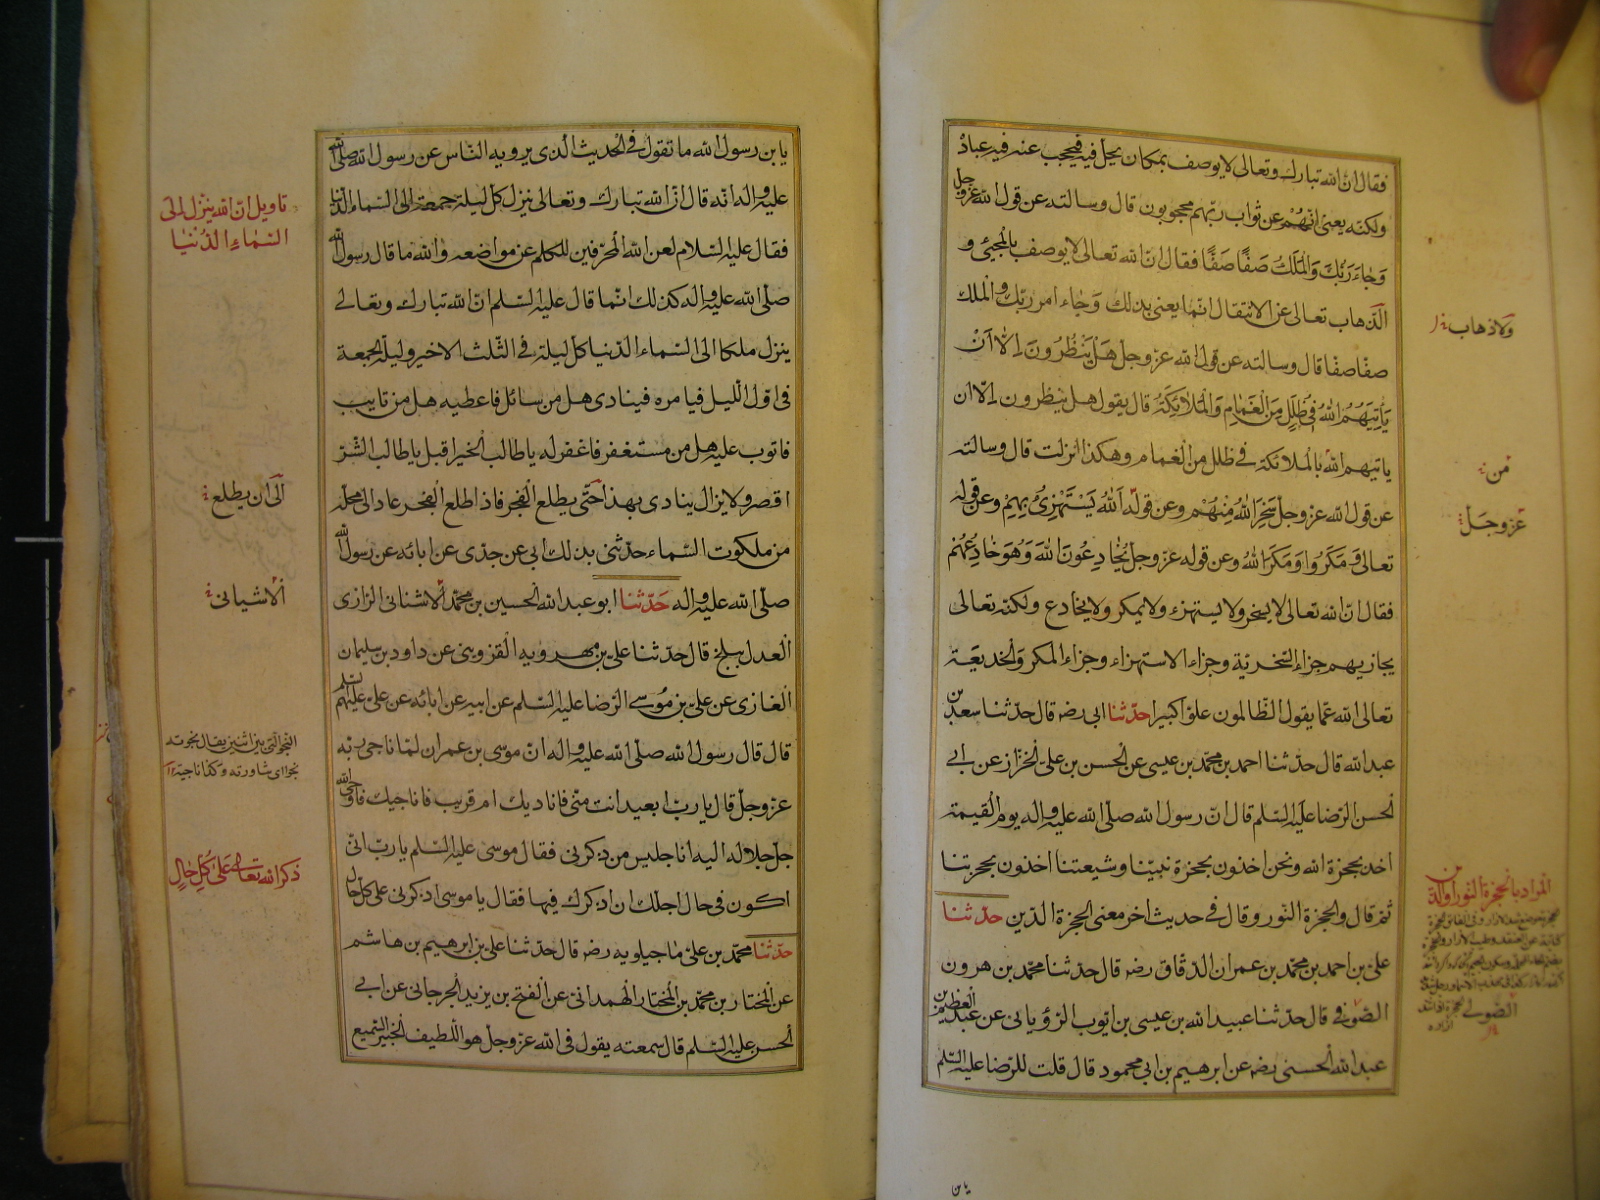 فقال ان الله تبارك وتعالى لا يوصف بمكان يحل فيه فيحجب عنه فيه عباده
ولكنه يعنى انهم عن ثواب ربهم محجوبون قال وسالته عن قول الله عز وجل
وَجاءَ رَبُّكَ وَالمَلَكُ صَفًّا صَفًّا فقال ان الله تعالى لا يوصف بالمجيئ و
الذهاب تعالى عن الانتقال انما يعنى بذلك وجاء امر ربك والملك
صفا صفا قال وسالته عن قول الله عز وجل هَل يَنظُرُونَ اِلّا اَنْ
يَاْتِيَهُمُ اللهُ فى ظُلَلٍ مِنَ الغَمامِ وَالمَلائِكَةُ قال يقول هل ينظرون الا ان
ياتيهم الله بالملائكة فى ظلل من الغمام وهكذا انزلت قال وسالته
عن قول الله عز وجل سَخِرَ اللهُ مِنْهُمْ وعن قوله اَللهُ يَسْتَهْزِئُ بِهِمْ وعن قوله
تعالى وَمَكَرُوا وَمَكَرَ اللهُ وعن قوله عز وجل يُخادِعُونَ اللهَ وَهُوَ خادِعُهُمْ
فقال ان الله تعالى لا يسخر ولا يستهزء ولا يمكر ولا يخادع ولكنه تعالى
يجازيهم جزاء السخرية وجزاء الاستهزاء وجزاء المكر والخديعة
تعالى الله عما يقول الظالمون علوا كبيرا حدثنا ابى رضه قال حدثنا سعد بن
عبد الله قال حدثنا احمد بن محمد بن عيسى عن الحسن بن على الخزاز عن ابى
الحسن الرضا عليه السلم قال ان رسول الله صلى الله عليه واله يوم القيمة
اخذ بحجزة الله ونحن اخذون بحجزة نبينا وشيعتنا اخذون بحجزتنا
ثم قال والحجزة النور وقال فى حديث اخر معنى الحجزة الدين حدثنا
على بن احمد بن محمد بن عمران الدقاق رضه قال حدثنا محمد بن هرون
الصوفى قال حدثنا عبيد الله بن عيسى بن ايوب الرؤيانى عن عبد العظيم بن
عبد الله الحسنى رضه عن ابرهيم بن ابى محمود قال قلت للرضا عليه السلم
ولا ذهاب
من
عز وجل
المراد بالحجزة النور او الدين
يابن
يابن رسول الله ما تقول فى الحديث الذى يرويه الناس عن رسول الله صلى الله
عليه واله انه قال ان الله تبارك وتعالى ينزل كل ليلة جمعة الى السماء الدنيا
فقال عليه السلام لعن الله المحرفين للكلم عن مواضعه والله ما قال رسول الله
صلى الله عليه واله كذلك انما قال عليه السلم ان الله تبارك وتعالى
ينزل ملكا الى السماء الدنيا كل ليلة فى الثلث الاخير وليلة الجمعة
فى اول الليل فيامره فينادى هل من سائل فاعطيه هل من تايب
فاتوب عليه هل من مستغفر فاغفر له يا طالب الخير اقبل يا طالب الشر
اقصر ولا يزال ينادى بهذا حتى يطلع الفجر فاذا طلع الفجر عاد الى محله
من ملكوت السماء حدثنى بذلك ابى عن جدى عن ابائه عن رسول الله
صلى الله عليه واله حدثنا ابو عبد الله الحسين بن محمد الاشنانى الرازى
العدل ببلخ قال حدثنا على بن مهرويه القزوينى عن داود بن سليمان
الغازى عن على بن موسى الرضا عليه السلم عن ابيه عن ابائه عن على عليهم السلم
قال قال رسول الله صلى الله عليه واله ان موسى بن عمران لما ناجى ربه
عز وجل قال يا رب ابعيد انت منى فاناديك ام قريب فاناجيك فاوحى الله
جل جلاله اليه انا جليس من ذكرنى فقال موسى عليه السلم يا رب انى
اكون فى حال اجلك ان اذكرك فيها فقال يا موسى اذكرنى على كل حال
حدثنا محمد بن على ماجيلويه رضه قال حدثنا على بن ابرهيم بن هاشم
عن المختار بن محمد بن المختار الهمدانى عن الفتح بن يزيد الجرجانى عن ابى
الحسن عليه السلم قال سمعته يقول فى الله عز وجل هو اللطيف الخبير السميع
تاويل ان الله ينزل الى
السماء الدنيا
الى ان يطلع
الاشيانى
ذكر الله تعالى على كل حال